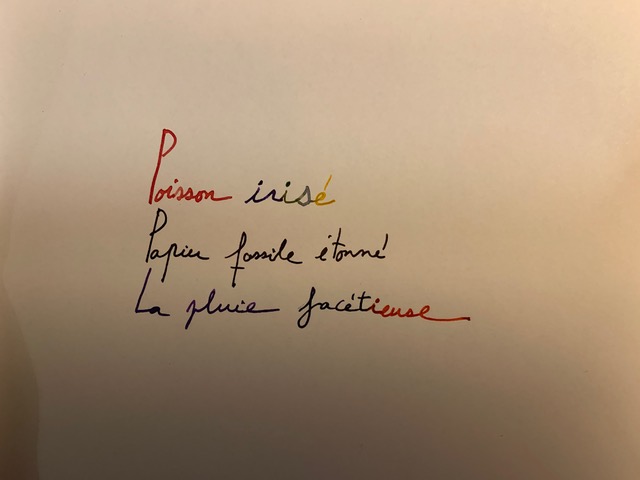 Poisson irisé
Papier fossile étonné
La pluie facétieuse